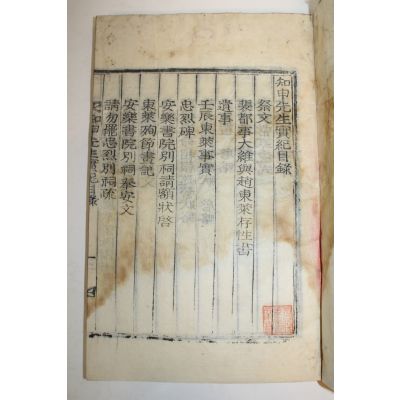 知申先生實紀目錄
祭文
裴都事大維與趙東萊存性書
遺事
壬辰東萊事實
忠烈碑
安樂書院別祠請額狀啓
東萊殉節書記
安樂書院別祠奉安文
請勿罷忠烈別祠疏
知申先生實紀目錄